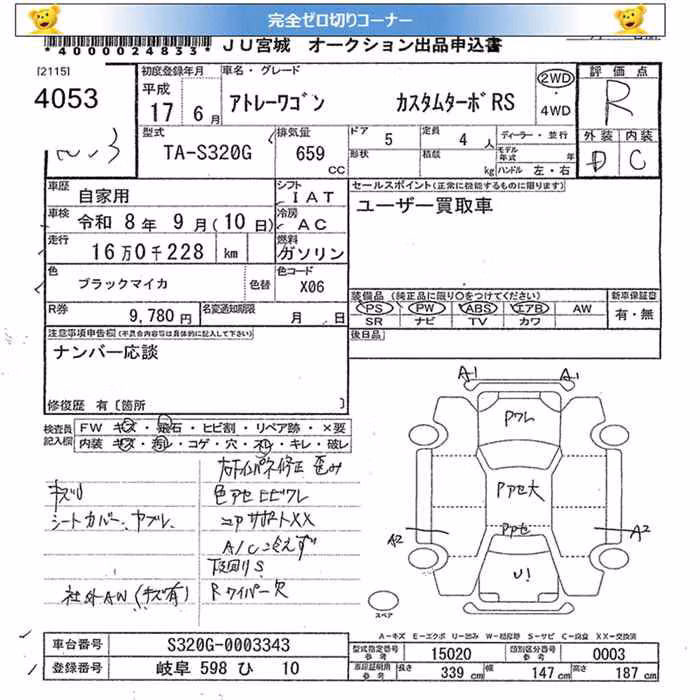 完全ゼロ切りコーナー
*4000024833*
JU宮城 オークション出品申込書
[2115]
4053
初度登録年月
平成
17 6月
車名・グレード
アトレーワゴン カスタムターボRS
2WD
・
4WD
評価点
R
型式
TA-S320G
排気量
659
CC
ドア 5
定員 4人
形状
積載 kg
ディーラー・並行
モデル年式 年
ハンドル 左・右
外装 内装
D C
車歴
自家用
シフト
IAT
車検
令和 8年 9月(10日)
冷房
AC
走行
16万0千228 km
燃料
ガソリン
色
ブラックマイカ
色替
色コード
X06
R券
9,780円
名変通知期限
月 日
セールスポイント(正常に機能するものに限ります)
ユーザー買取車
装備品(純正品に限り○をつけてください)
PS PW ABS エアB AW
SR ナビ TV カワ
新車保証書
有・無
後日品
注意事項申告欄(不具合内容等は具体的に記入して下さい)
ナンバー応談
修復歴 有〔箇所 〕
検査員記入欄
FW キズ・飛石・ヒビ割・リペア跡・×要
内装 キズ・汚レ・コゲ・穴・スレ・キレ・破レ
キズ小
シートカバー、ヤブレ
社外AW(キズ有)
右Fインパネ修正 歪み
色アセ ヒビワレ
コアサポートXX
A/C冷えず
下回りS
Rワイパー欠
A1 A1
Pワレ
Pアセ大
A2 Pアセ A2
U!
スペア
A-キズ E-エクボ U-凹み W-補修跡 S-サビ C-腐食 XX-交換済
車台番号 S320G-0003343
登録番号 岐阜 598 ひ 10
型式指定番号
参考
15020
類別区分番号
参考
0003
車印証明用
参考
長さ 339 cm 幅 147 cm 高さ 187 cm